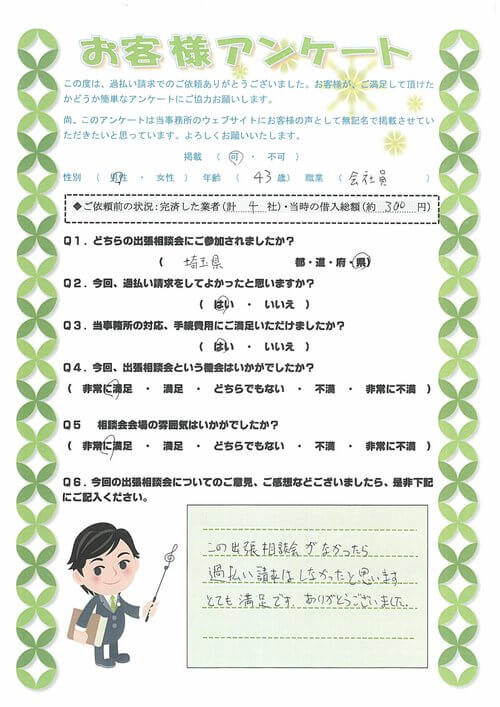 お客様アンケート
この度は、過払い請求でのご依頼ありがとうございました。お客様が、ご満足して頂けた
かどうか簡単なアンケートにご協力お願いします。
尚、このアンケートは当事務所のウェブサイトにお客様の声として無記名で掲載させてい
ただきたいと思っています。よろしくお願いいたします。
掲載 ( 可 ・ 不可 )
性別 ( 男性 ・ 女性 ) 年齢 ( 43 歳) 職業 ( 会社員 )
◆ご依頼前の状況:完済した業者(計 4 社)・当時の借入総額(約 300 円)
Q1.どちらの出張相談会にご参加されましたか?
( 埼玉県 都・道・府・県)
Q2.今回、過払い請求をしてよかったと思いますか?
( はい ・ いいえ )
Q3.当事務所の対応、手続費用にご満足いただけましたか?
( はい ・ いいえ )
Q4.今回、出張相談会という機会はいかがでしたか?
( 非常に満足 ・ 満足 ・ どちらでもない ・ 不満 ・ 非常に不満 )
Q5 相談会会場の雰囲気はいかがでしたか?
( 非常に満足 ・ 満足 ・ どちらでもない ・ 不満 ・ 非常に不満 )
Q6.今回の出張相談会についてのご意見、ご感想などございましたら、是非下記
にご記入ください。
この出張相談会がなかったら
過払い請求はしなかったと思います
とても満足です。ありがとうございました。